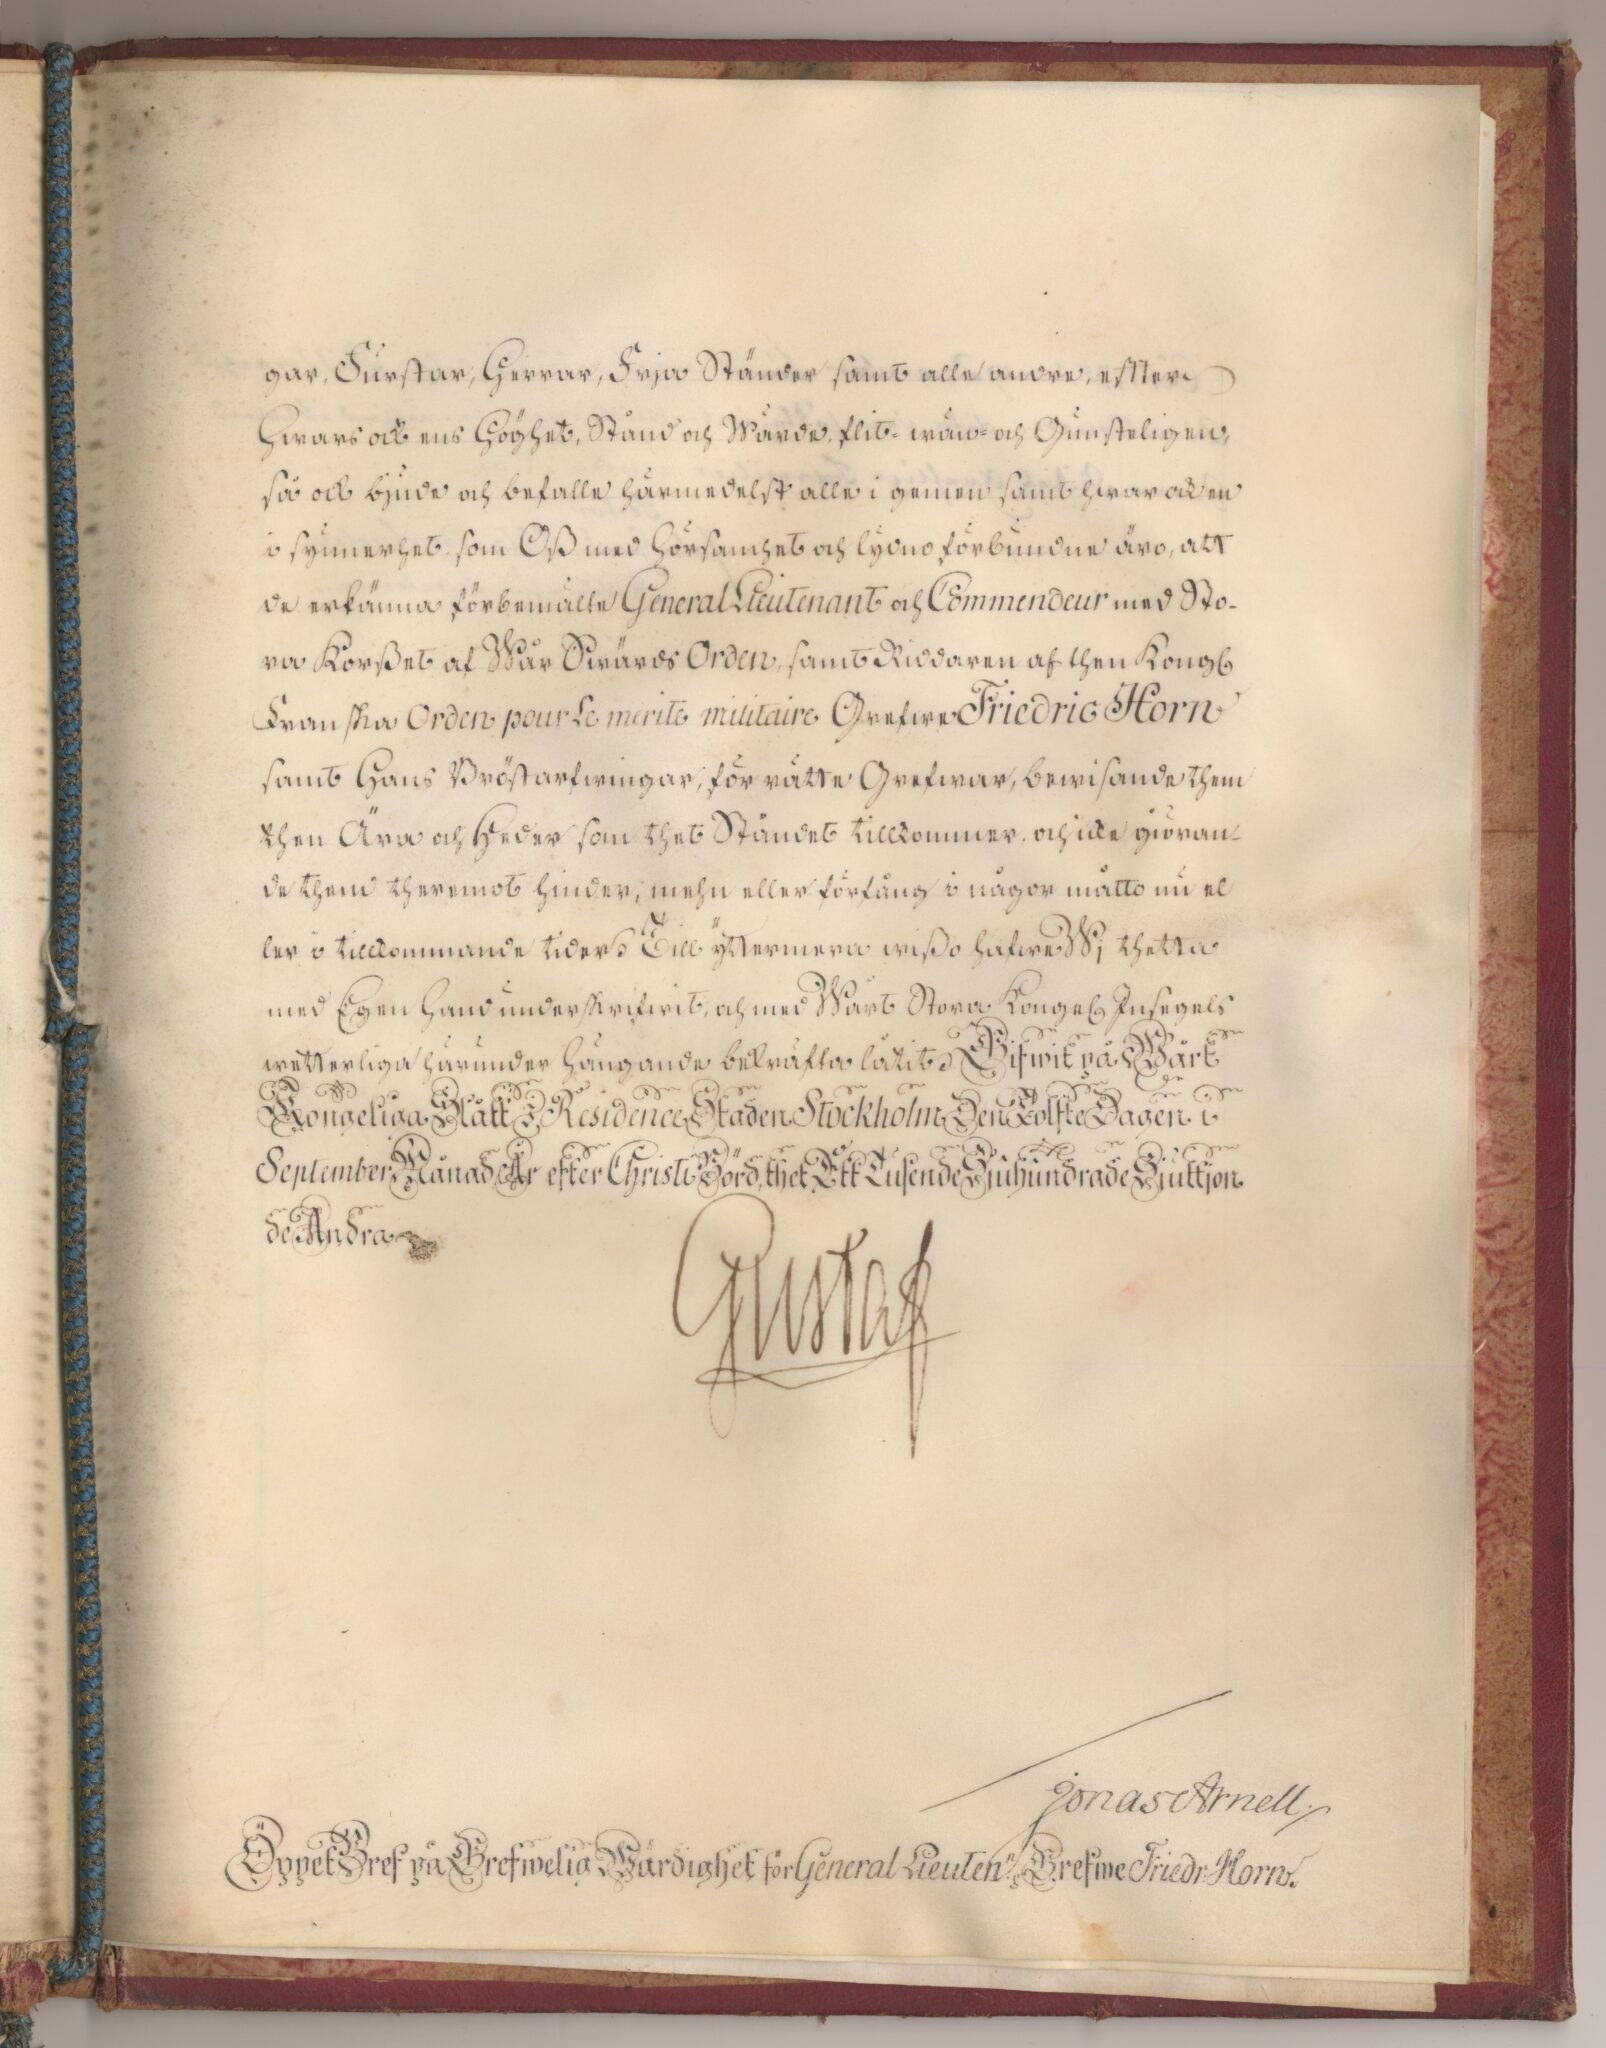 gar, Furstar, Herrar, Frja Ständer samt alle andre, effter
Hwars ock ens Höghet, Stånd och Wärde, flit- wän- och Gunsteligen,
så ock bjude och befalle härmedelst alle i gemen samt hwar ock en
i synnerhet som Oß med hörsamhet och lydno förbundne äro, att
de erkänna förbemälte General Lieutenant och Commendeur med Sto-
ra Korßet af Wår Swärds Orden, samt Riddaren af then Kongl
Franska Orden pour Le merite militaire Grefwe Friedric Horn
samt Hans Bröstarfwingar, för rätte Grefwar, bewisande them
then Ära och Heder som thet Ståndet tillkommer, och icke giöran-
de them theremot hinder, mehn eller förfång i någor måtto nu el
ler i tillkommande tider. Till yttermera wißo hafwe Wj thetta
med Egen Hand underskrifwit, och med Wårt Stora Kongel Insegels
wetterliga härunder hängande bekräfta låtit. Gifwit på Wårt
Kongeliga Slått i Residence Staden Stockholm Den Tolfte Dagen i
September Månad År efter Christi Börd, thet Ett Tusende Sjuhundrade Sjuttjon
de Andra
Gustaf
Jonas Arnell
Öppet Bref på Grefwelig Wärdighet för General Lieuten: Grefwe Friedr: Horn.